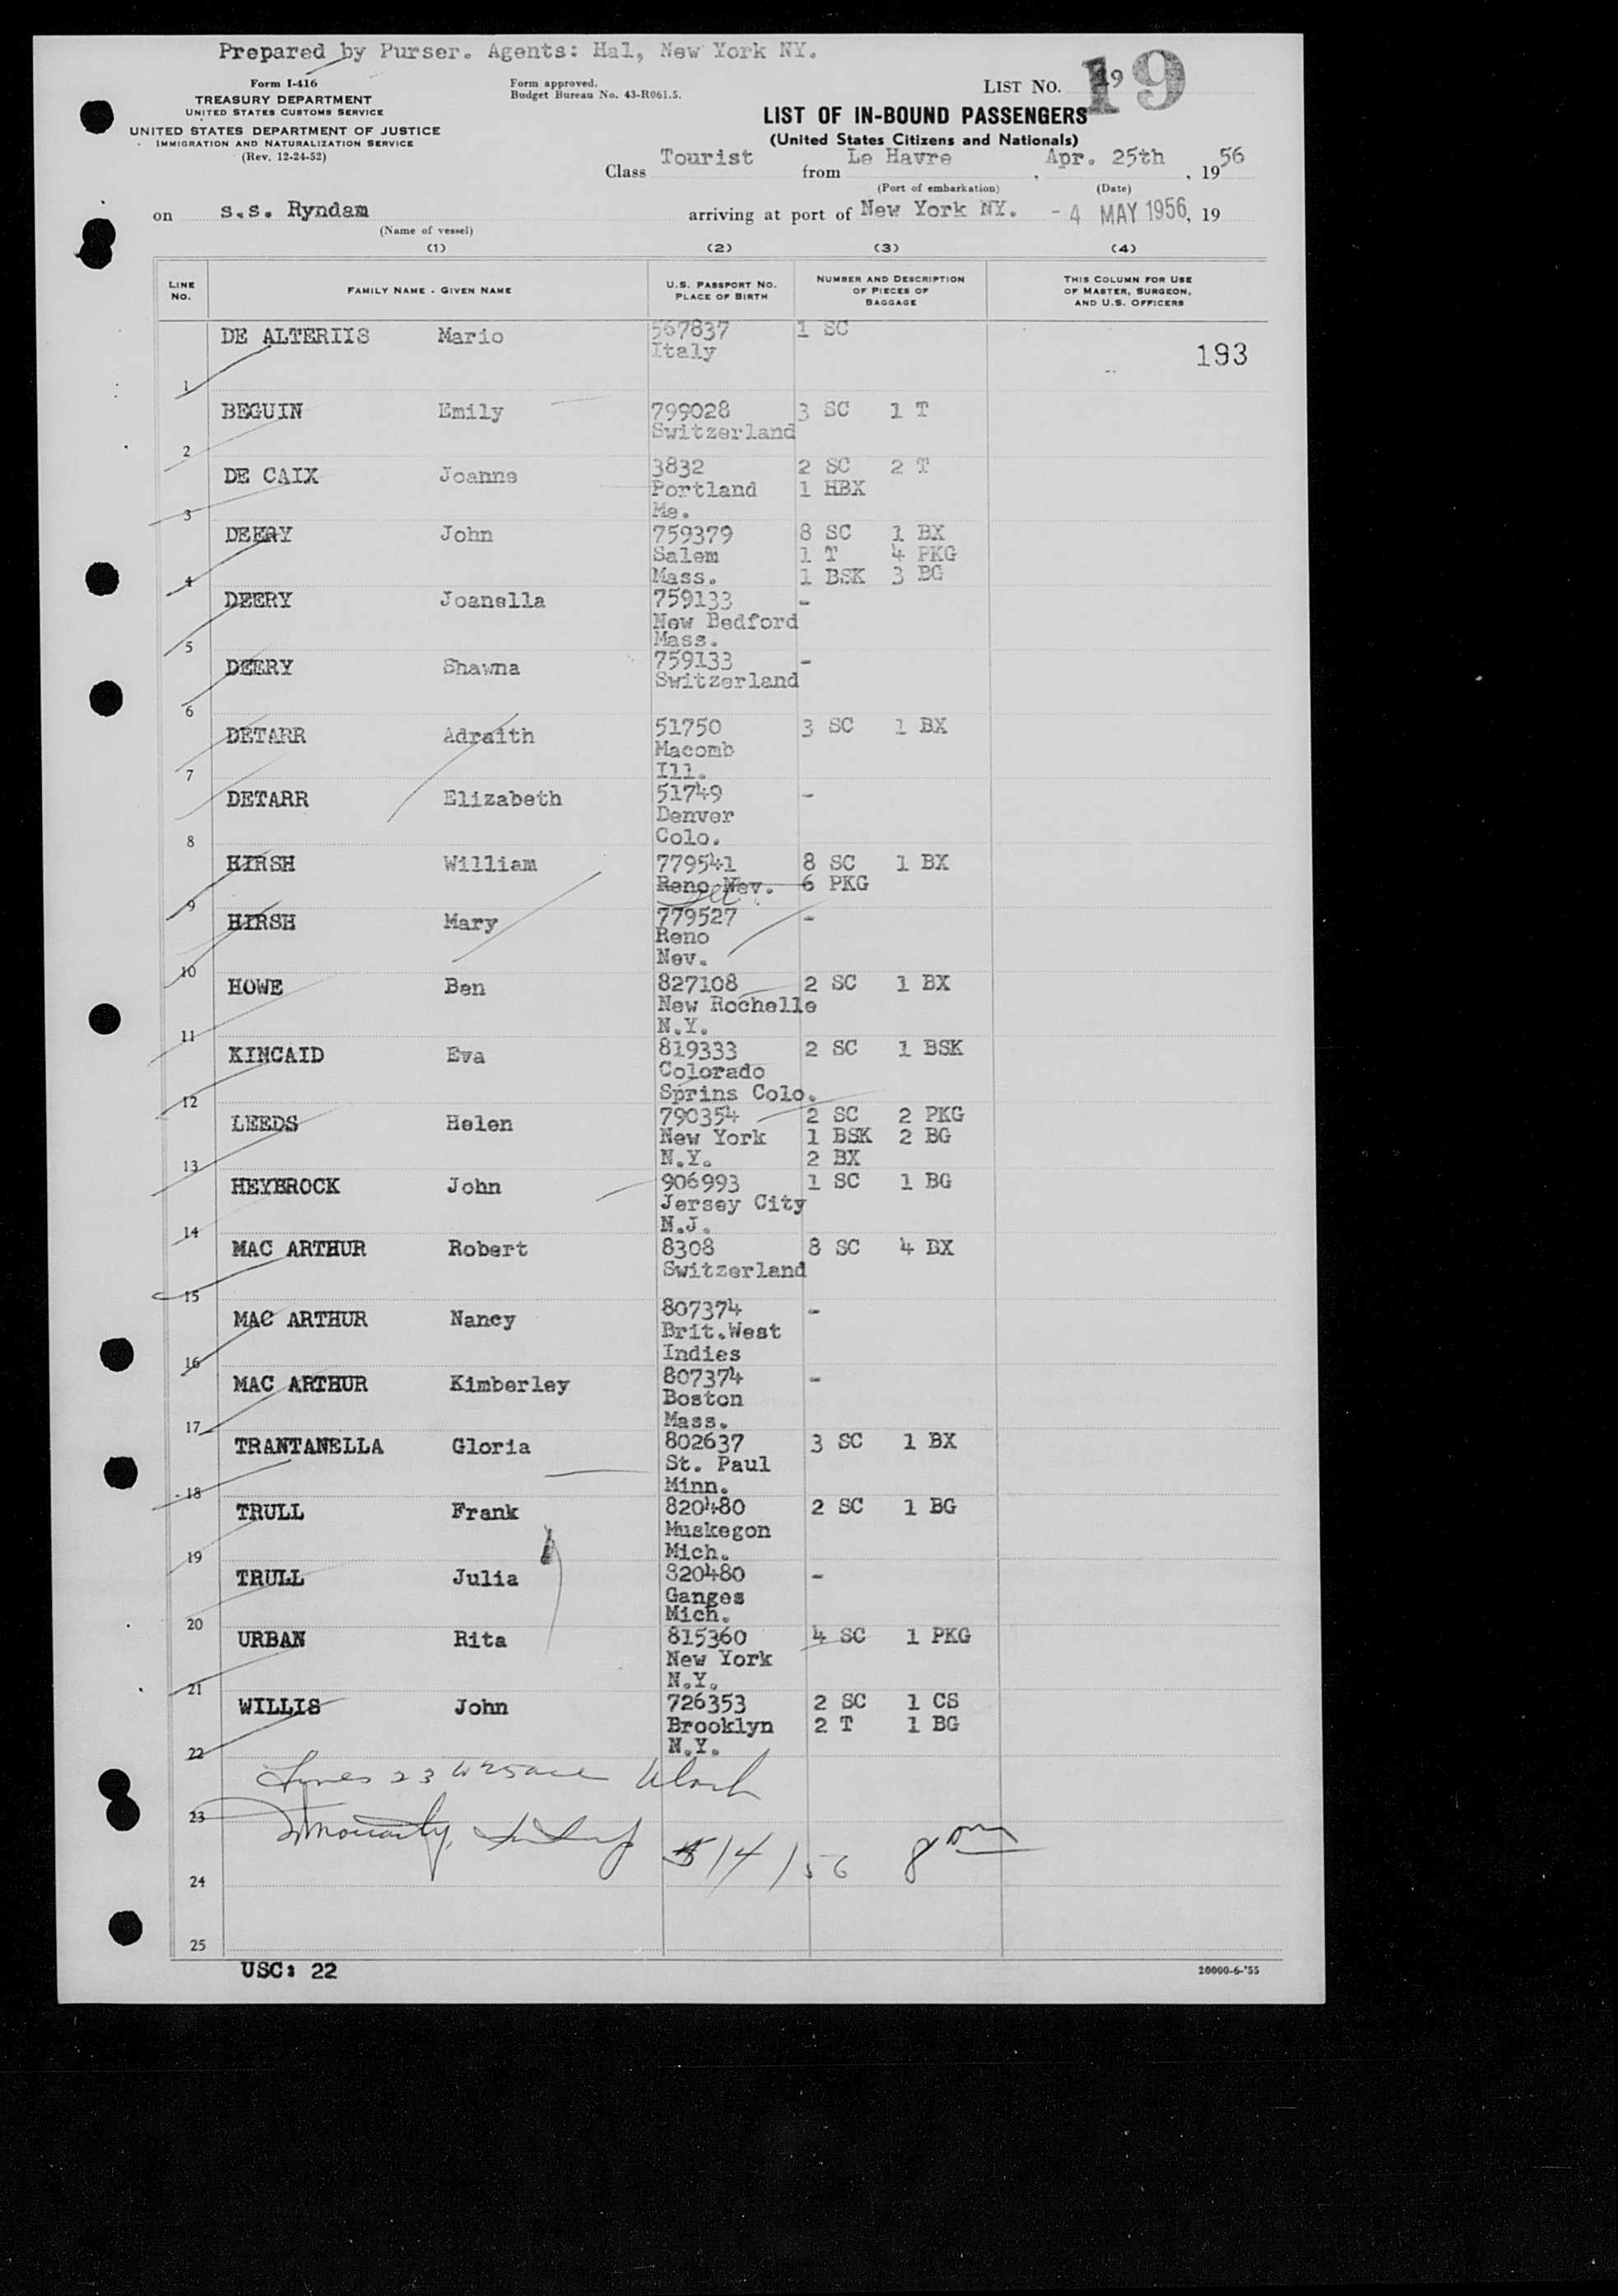 Prepared by Purser. Agents: Hal, New York NY.
Form I-416
TREASURY DEPARTMENT
UNITED STATES CUSTOMS SERVICE
UNITED STATES DEPARTMENT OF JUSTICE
IMMIGRATION AND NATURALIZATION SERVICE
(Rev. 12-24-52)
Form approved.
Budget Bureau No. 43-R061.5.
LIST NO. 19
LIST OF IN-BOUND PASSENGERS
(United States Citizens and Nationals)
Class Tourist from Le Havre, Apr. 25th, 1956
(Port of embarkation) (Date)
on s.s. Ryndam arriving at port of New York NY. - 4 MAY 1956, 19
(Name of vessel)
(1) (2) (3) (4)
LINE NO. FAMILY NAME - GIVEN NAME U.S. PASSPORT NO. PLACE OF BIRTH NUMBER AND DESCRIPTION OF PIECES OF BAGGAGE THIS COLUMN FOR USE OF MASTER, SURGEON, AND U.S. OFFICERS
DE ALTERIIS Mario 567837 1 SC
Italy 193
1
BEGUIN Emily 799028 3 SC 1 T
Switzerland
2
DE CAIX Joanne 3832 2 SC 2 T
Portland 1 HBX
Me.
3
DEERY John 759379 8 SC 1 BX
Salem 1 T 4 PKG
Mass. 1 BSK 3 BG
4
DEERY Joanella 759133 -
New Bedford
Mass.
5
DEERY Shawna 759133 -
Switzerland
6
DETARR Adraith 51750 3 SC 1 BX
Macomb
Ill.
7
DETARR Elizabeth 51749 -
Denver
Colo.
8
HIRSH William 779541 8 SC 1 BX
Reno Nev. 6 PKG
9
HIRSH Mary 779527 -
Reno
Nev.
10
HOWE Ben 827108 2 SC 1 BX
New Rochelle
N.Y.
11
KINCAID Eva 819333 2 SC 1 BSK
Colorado
Sprins Colo.
12
LEEDS Helen 790354 2 SC 2 PKG
New York 1 BSK 2 BG
N.Y. 2 BX
13
HEYBROCK John 906993 1 SC 1 BG
Jersey City
N.J.
14
MAC ARTHUR Robert 8308 8 SC 4 BX
Switzerland
15
MAC ARTHUR Nancy 807374 -
Brit.West
Indies
16
MAC ARTHUR Kimberley 807374 -
Boston
Mass.
17
TRANTANELLA Gloria 802637 3 SC 1 BX
St. Paul
Minn.
18
TRULL Frank 820480 2 SC 1 BG
Muskegon
Mich.
19
TRULL Julia 820480 -
Ganges
Mich.
20
URBAN Rita 815360 4 SC 1 PKG
New York
N.Y.
21
WILLIS John 726353 2 SC 1 CS
Brooklyn 2 T 1 BG
N.Y.
22
Lines 23 to 25 are blank
23
5/4/56
24
25
USC: 22
20000-6-'55